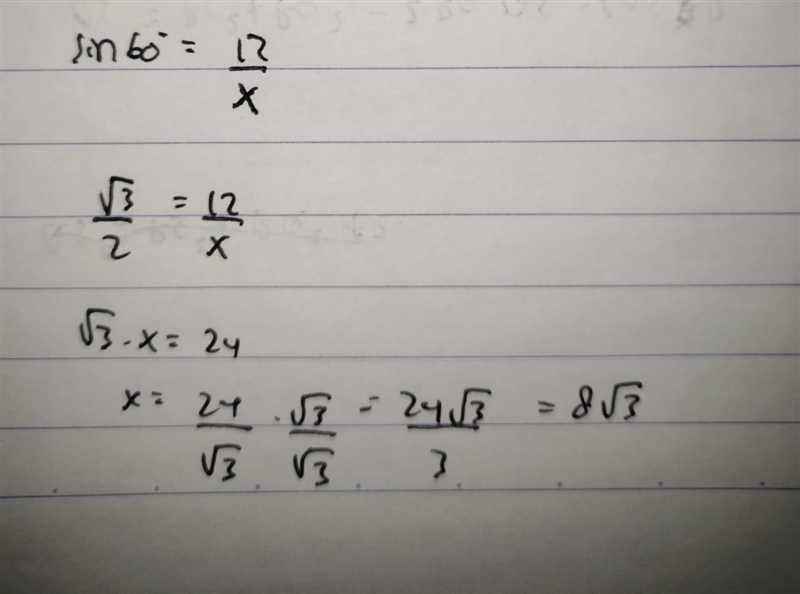 sin 60° = 12/x
√3/2 = 12/x
√3 · x = 24
x = 24/√3 · √3/√3 = 24√3/3 = 8√3